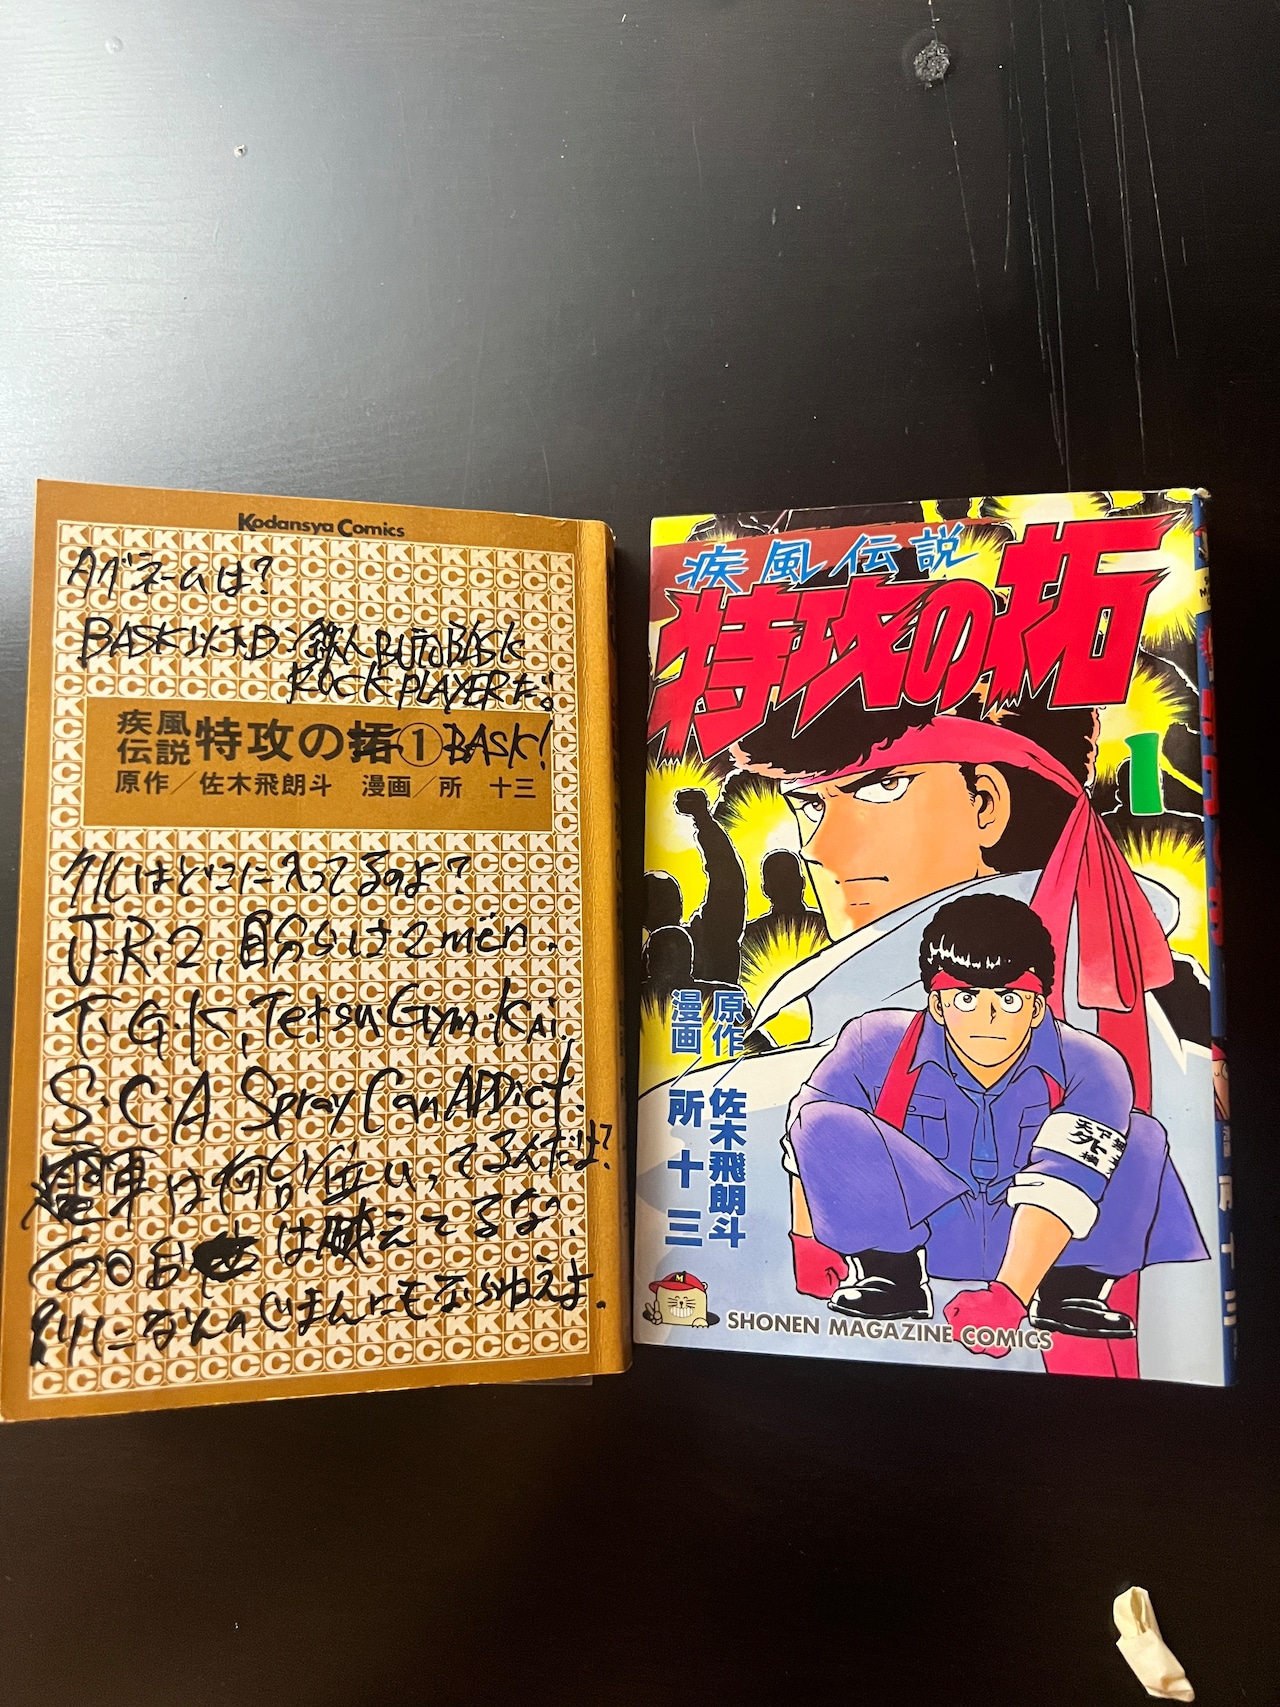 Kodansya Comics
タグネームは?
BASK以下TB:鉄人BUTOBASK
ROCK PLAYERだ。
疾風伝説 特攻の拓① BASK!
原作/佐木飛朗斗 漫画/所 十三
クルはどこに入ってるのよ?
J・R・2, 自分らは2 men.
T・G・K, Tetsu Gym・Kai.
S・C・A Spray Can ADDict.
電車は何台位いってるんだよ?
600台は越えてるな。
別になんのじまんにもならねえよ.
疾風伝説
特攻の拓
1
原作/佐木飛朗斗
漫画/所 十三
天下無
外
横
SHONEN MAGAZINE COMICS